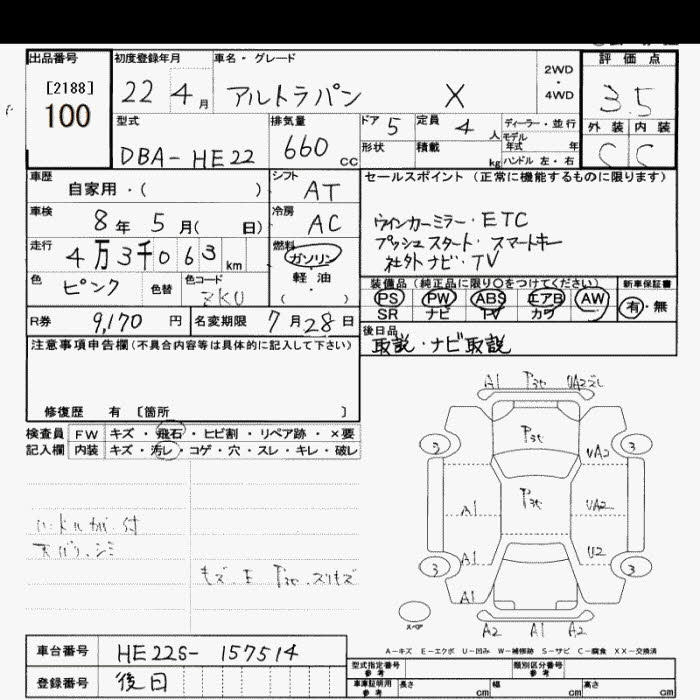 出品番号
[2188]
100
初度登録年月
22 4月
車名・グレード
アルトラパン X
2WD
・
4WD
評価点
3.5
外装 内装
C C
型式
DBA-HE22
排気量
660 cc
ドア 5
定員 4人
形状
積載 kg
ディーラー・並行
モデル年式 年
ハンドル 左・右
車歴
自家用・( )
シフト
AT
車検
8年 5月( 日)
冷房
AC
走行
4万3千063 km
燃料
ガソリン
軽油
( )
色
ピンク
色替
色コード
ZKU
R券 9,170円
名変期限 7月28日
セールスポイント(正常に機能するものに限ります)
ウインカーミラー・ETC
プッシュスタート・スマートキー
社外ナビ・TV
装備品(純正品に限り○をつけてください)
PS PW ABS エアB AW
SR ナビ TV カワ
新車保証書
有・無
後日品
取説・ナビ取説
注意事項申告欄(不具合内容等は具体的に記入して下さい)
修復歴 有 [箇所 ]
検査員記入欄
FW キズ・飛石・ヒビ割・リペア跡・×要
内装 キズ・汚レ・コゲ・穴・スレ・キレ・破レ
天バリ・シミ
A1
UA2
3
A1
UA2
A1
U2
3
3
A1
スペア
A2 A1 A2
A-キズ E-エクボ U-凹み W-補修跡 S-サビ C-腐食 XX-交換済
車台番号 HE22S-157514
登録番号 後日
型式指定番号
参考
類別区分番号
参考
車庫証明用
参考
長さ cm
幅 cm
高さ cm